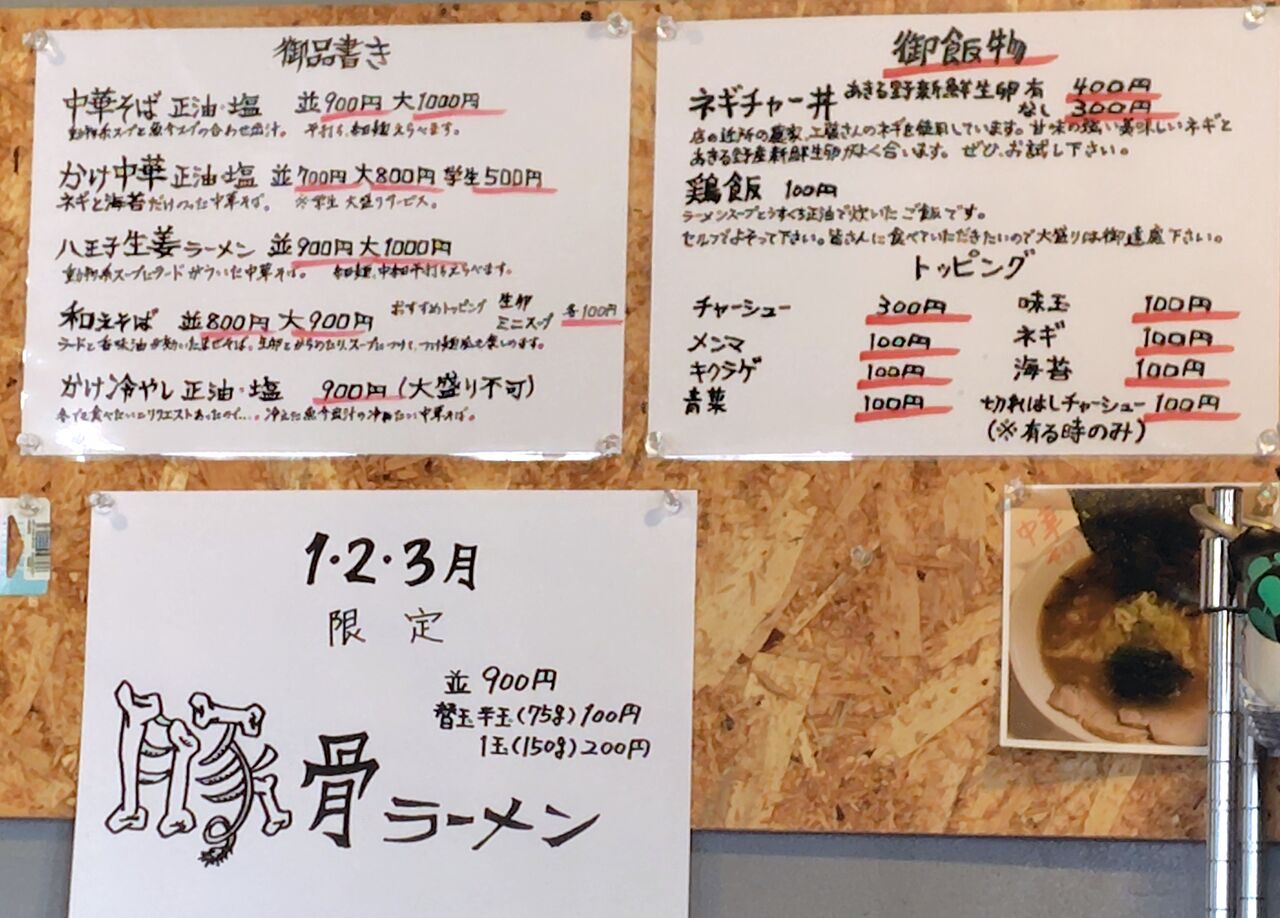 御品書き
中華そば 正油・塩 並900円 大1000円
動物系スープと魚介スープの合わせ出汁。 平打ち、細麺えらべます。
かけ中華 正油・塩 並700円 大800円 学生500円
ネギと海苔だけのった中華そば。 ※学生 大盛りサービス。
八王子生姜ラーメン 並900円 大1000円
動物系スープにラードがういた中華そば。 細麺、中細平打ちえらべます。
和えそば 並800円 大900円 おすすめトッピング 生卵 ミニスープ 各100円
ラードと香味油が効いたまぜそば。生卵とからめたり、スープにつけて、つけ麺風も楽しめます。
かけ冷やし 正油・塩 900円 (大盛り不可)
冬でも食べたいとリクエストあったので…。冷えた魚介出汁の冷めたい中華そば。
御飯物
ネギチャー丼 あきる野新鮮生卵 有 400円
なし 300円
店の近所の農家、工藤さんのネギを使用しています。甘味の強い美味しいネギと
あきる野産新鮮生卵がよく合います。ぜひ、お試し下さい。
鶏飯 100円
ラーメンスープとうすくち正油で炊いたご飯です。
セルフでよそって下さい。皆さんに食べていただきたいので大盛りは御遠慮下さい。
トッピング
チャーシュー 300円 味玉 100円
メンマ 100円 ネギ 100円
キクラゲ 100円 海苔 100円
青菜 100円 切れはしチャーシュー 100円
(※有る時のみ)
1・2・3月
限定
並 900円
替玉 半玉(75g)100円
1玉(150g)200円
豚骨ラーメン
中華